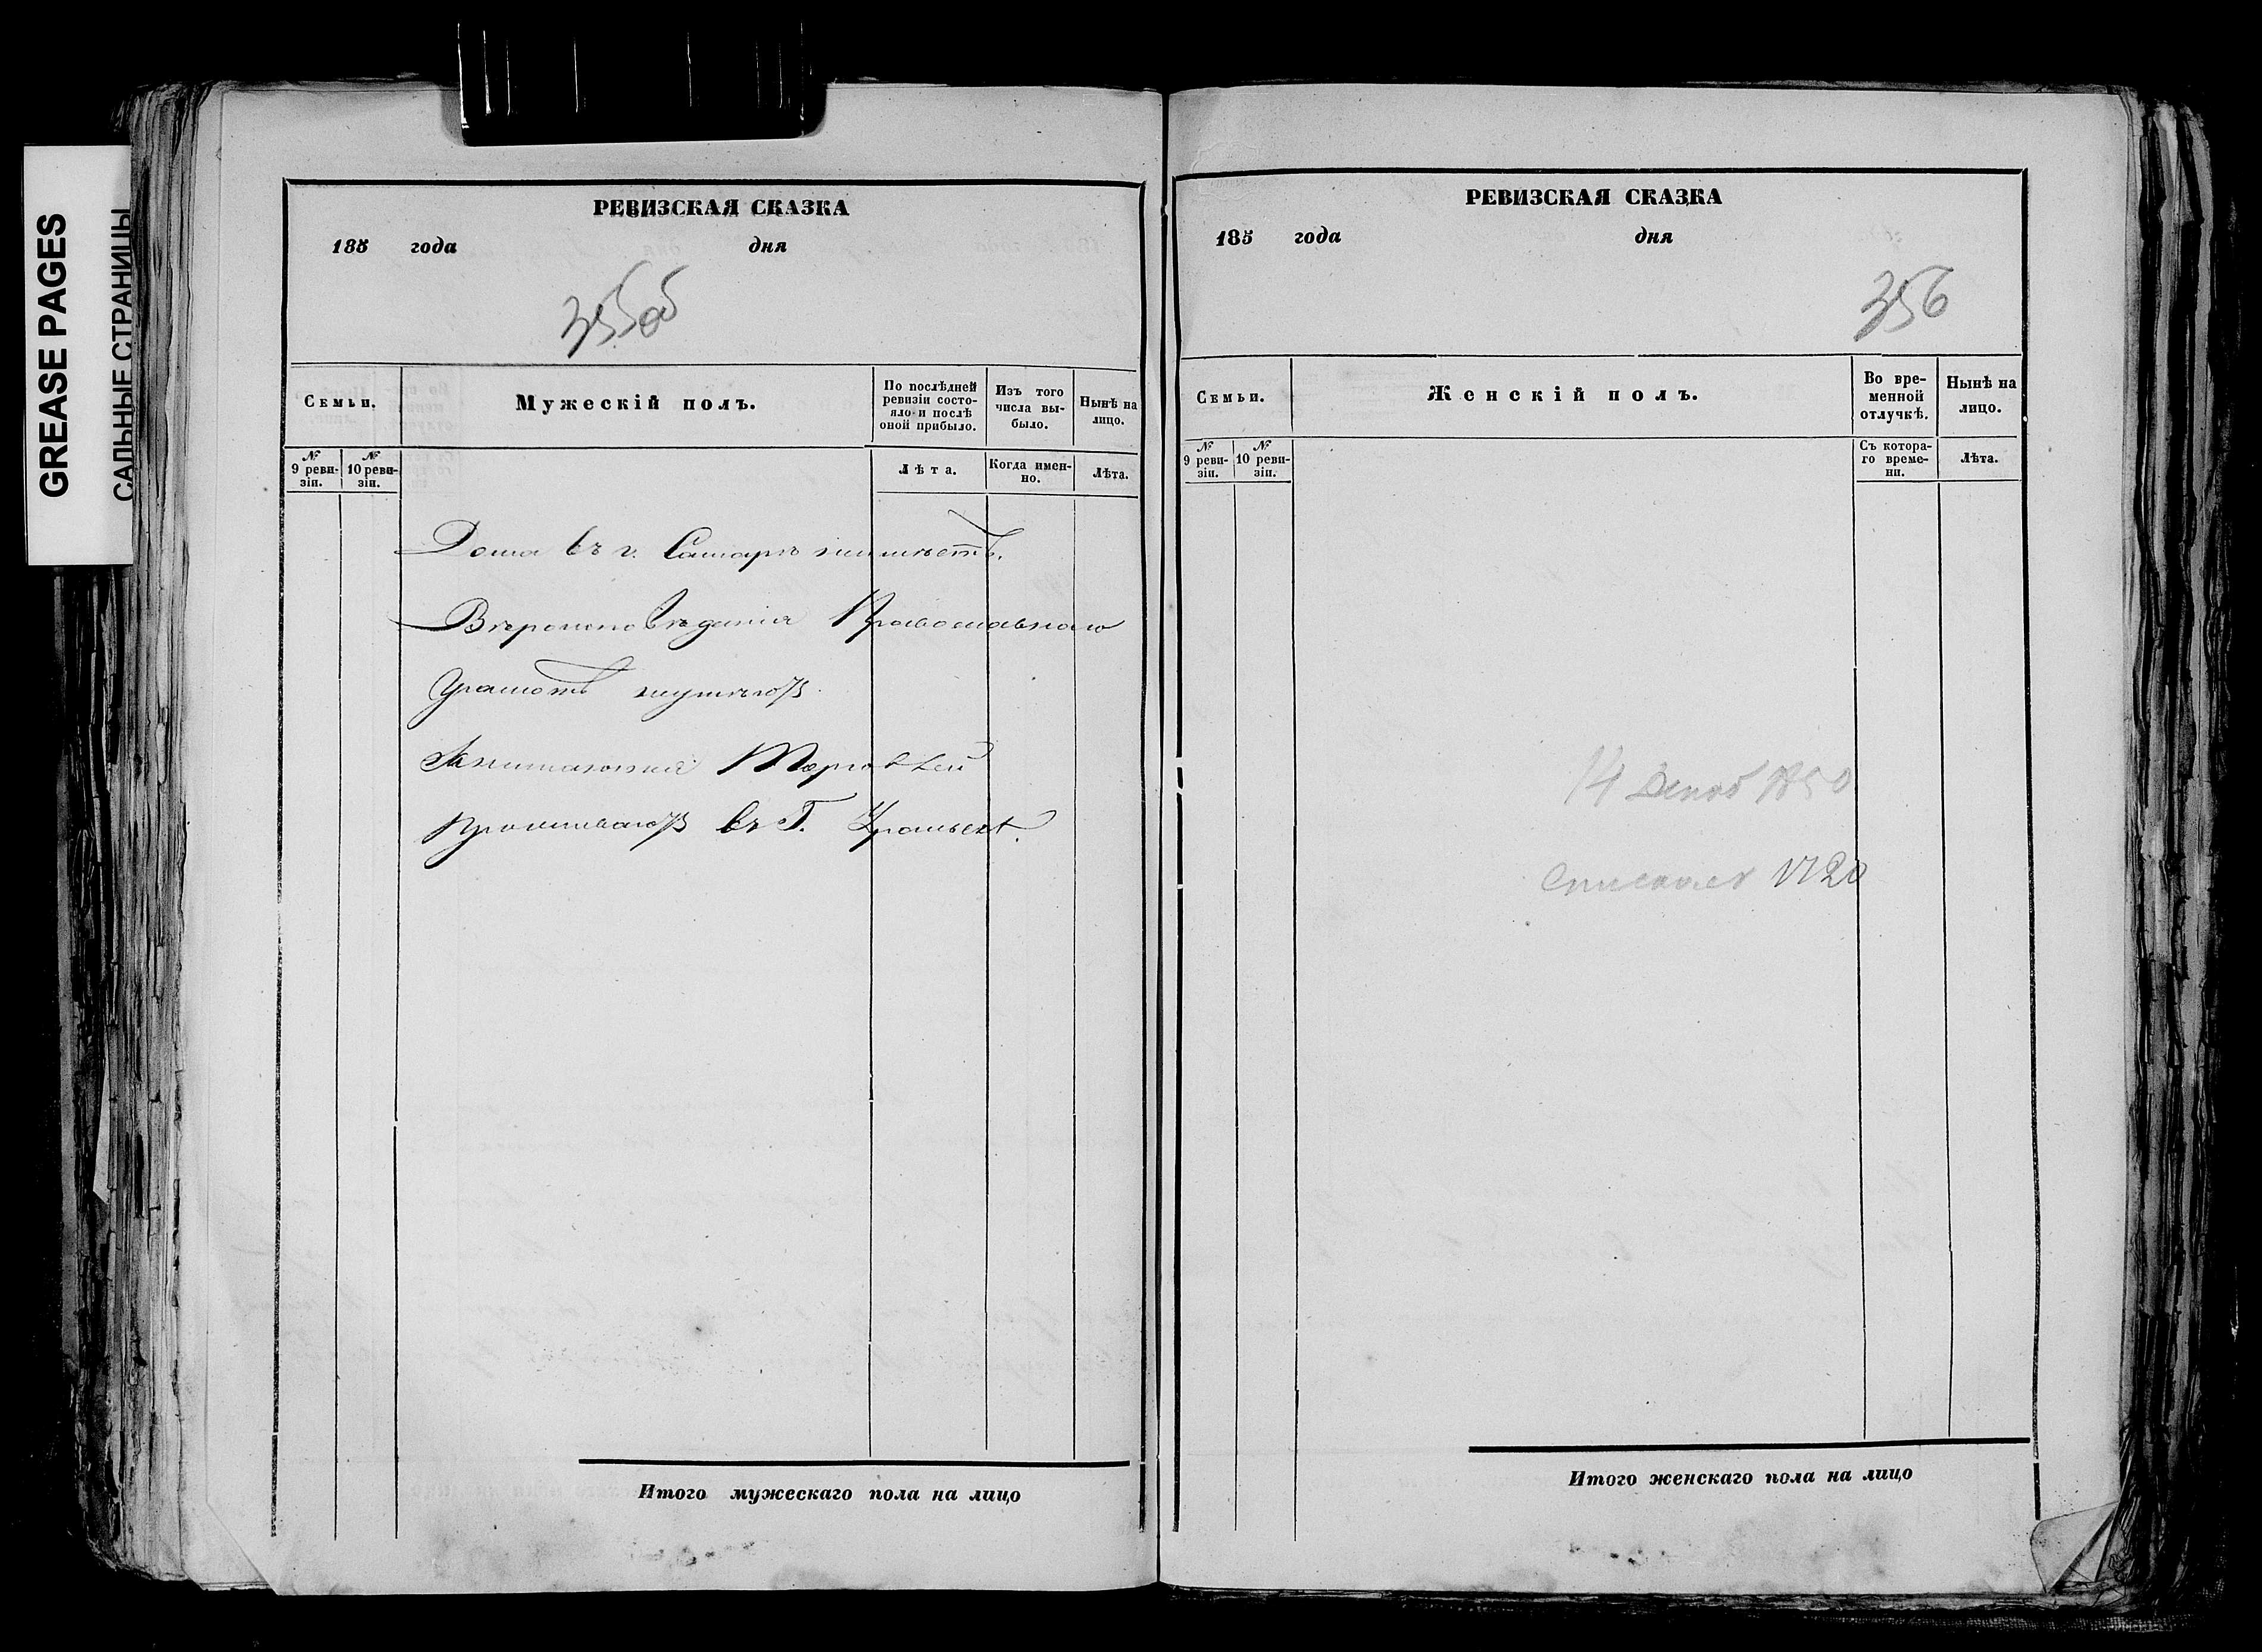 GREASE PAGES
САЛЬНЫЕ СТРАНИЦЫ
РЕВИЗСКАЯ СКАЗКА
185 года дня
355об
Семьи.
Мужескій полъ.
По послѣдней ревизіи состояло и послѣ оной прибыло.
Изъ того числа выбыло.
Нынѣ на лицо.
№ 9 ревизіи.
№ 10 ревизіи.
Лѣта.
Когда именно.
Лѣта.
Дома въ г. Самарѣ неимѣетъ.
Вѣроисповѣданія Православнаго
Грамотѣ неумѣютъ
Занимаются Торговлей
Проживаютъ въ Г. Уральскѣ.
Итого мужескаго пола на лицо
РЕВИЗСКАЯ СКАЗКА
185 года дня
356
Семьи.
Женскій полъ.
Во временной отлучкѣ.
Нынѣ на лицо.
№ 9 ревизіи.
№ 10 ревизіи.
Съ котораго времени.
Лѣта.
14
Итого женскаго пола на лицо